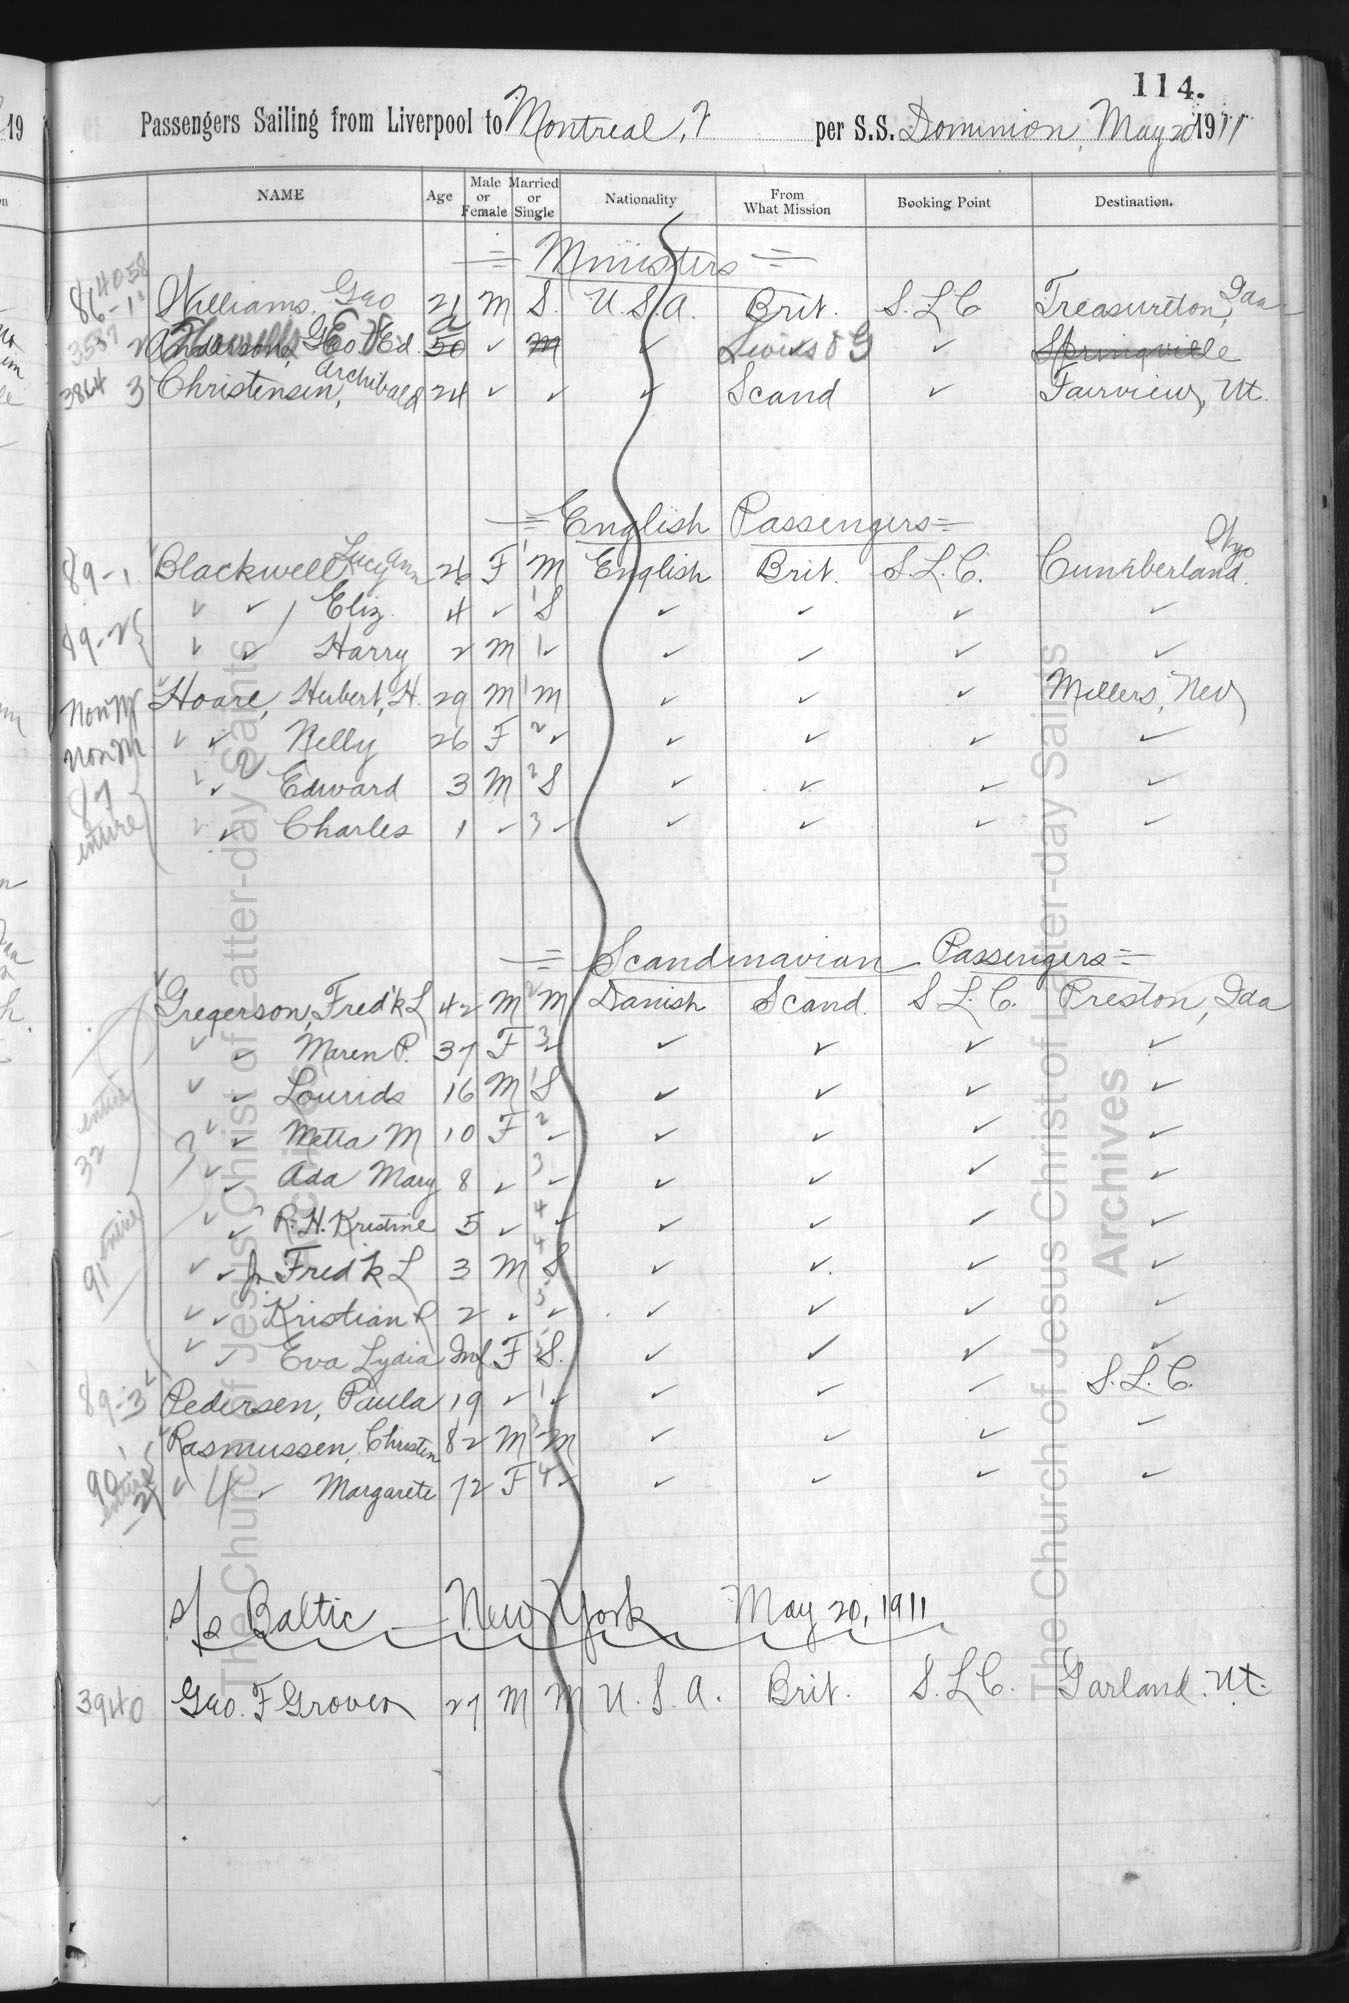 114.
Passengers Sailing from Liverpool to Montreal, per S.S. Dominion, May 20 1911
NAME Age Male or Female Married or Single Nationality From What Mission Booking Point Destination.
= Ministers =
86-1 4058 Williams, Geo 21 M S. U.S.A. Brit. S.L.C Treasureton, Ida
3537 2 Anderson, Ed. 50 ✓ M ✓ Swiss & G ✓ Springville
3864 3 Christensen, Archibald 24 ✓ ✓ ✓ Scand ✓ Fairview, Ut.
= English Passengers =
89-1 Blackwell Lucy Ann 26 F 1 M English Brit. S.L.C. Cumberland. Wyo
✓ ✓ , Eliz. 4 ✓ 1 S ✓ ✓ ✓ ✓
89-2 ✓ ✓ Harry 2 M 1 ✓ ✓ ✓ ✓ ✓
Non M Hoare, Herbert, H. 29 M 1 M ✓ ✓ ✓ Millers, Nev
Non M ✓ ✓ Nelly 26 F 2 ✓ ✓ ✓ ✓ ✓
87 ✓ 2 Edward 3 M 2 S ✓ ✓ ✓ ✓
entire ✓ ✓ Charles 1 ✓ 3 ✓ ✓ ✓ ✓ ✓
= Scandinavian Passengers =
Gregerson, Fred'k L 42 M 2 M Danish Scand. S.L.C. Preston, Ida
✓ ✓ Maren P. 37 F 3 ✓ ✓ ✓ ✓ ✓
✓ ✓ Lourids 16 M 1 S ✓ ✓ ✓ ✓
entire 32 3 ✓ ✓ Metta M 10 F 2 ✓ ✓ ✓ ✓ ✓
✓ ✓ Ada Mary 8 ✓ 3 ✓ ✓ ✓ ✓ ✓
✓ ✓ R.H. Kristine 5 ✓ 4 ✓ ✓ ✓ ✓ ✓
91 entire ✓ ✓ Jr Fred'k L 3 M 4 S ✓ ✓ ✓ ✓
✓ ✓ Kristian P 2 ✓ 5 ✓ ✓ ✓ ✓ ✓
✓ ✓ Eva Lydia Inf F S. ✓ ✓ ✓ ✓
89-3 Pedersen, Paula 19 ✓ 1 ✓ ✓ ✓ ✓ S.L.C.
Rasmussen, Christen 82 M 3 M ✓ ✓ ✓ ✓
90 entire ✓ 4 ✓ Margarete 72 F 4 ✓ ✓ ✓ ✓ ✓
s/s Baltic — New York May 20, 1911
3940 Geo. F Grover 27 M M U.S.A. Brit. S.L.C. Garland. Ut.
The Church of Jesus Christ of Latter-day Saints
Archives
The Church of Jesus Christ of Latter-day Saints
Archives
19